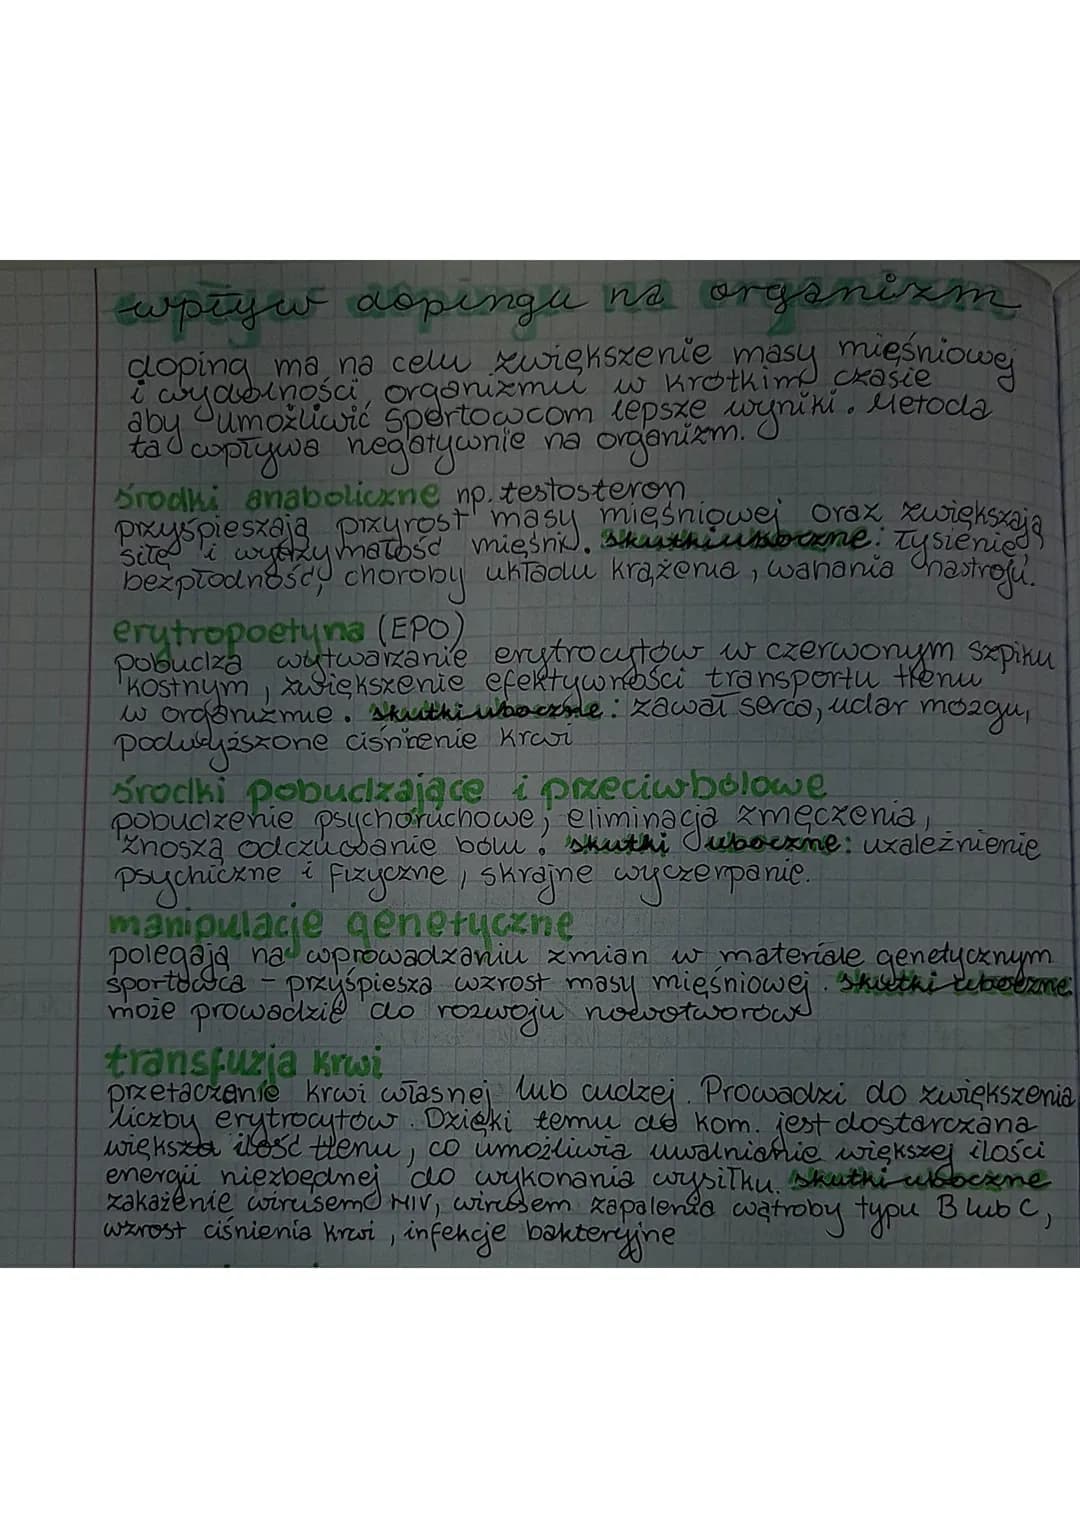 wpływ dopingu na organizm
doping ma na celu zwiększenie masy mięśniowej
i wydolności organizmu w krótkim czasie
aby umożliwić sportowcom lepsze wyniki. Metoda
ta wpływa negatywnie na organizm.
środki anaboliczne np. testosteron
przyśpieszają przyrost masy mięśniowej oraz zwiększają
siłę i wytrzymałość mięśni. skutki uboczne: łysienie,
bezpłodność, choroby układu krążenia, wahania nastroju.
erytropoetyna (EPO)
pobudza wytwarzanie erytrocytów w czerwonym szpiku
kostnym, zwiększenie efektywności transportu tlenu
w organizmie. skutki uboczne: zawał serca, udar mózgu,
podwyższone ciśnienie krwi
środki pobudzające i przeciwbólowe
pobudzenie psychoruchowe, eliminacja zmęczenia,
znoszą odczuwanie bólu. skutki uboczne: uzależnienie
psychiczne i fizyczne, skrajne wyczerpanie.
manipulacje genetyczne
polegają na wprowadzaniu zmian w materiale genetycznym
sportowca - przyśpiesza wzrost masy mięśniowej. skutki uboczne:
może prowadzić do rozwoju nowotworów
transfuzja krwi
przetaczanie krwi własnej lub cudzej. Prowadzi do zwiększenia
liczby erytrocytów. Dzięki temu do kom. jest dostarczana
większa ilość tlenu, co umożliwia uwalnianie większej ilości
energii niezbędnej do wykonania wysiłku. skutki uboczne
zakażenie wirusem HIV, wirusem zapalenia wątroby typu B lub C,
wzrost ciśnienia krwi, infekcje bakteryjne